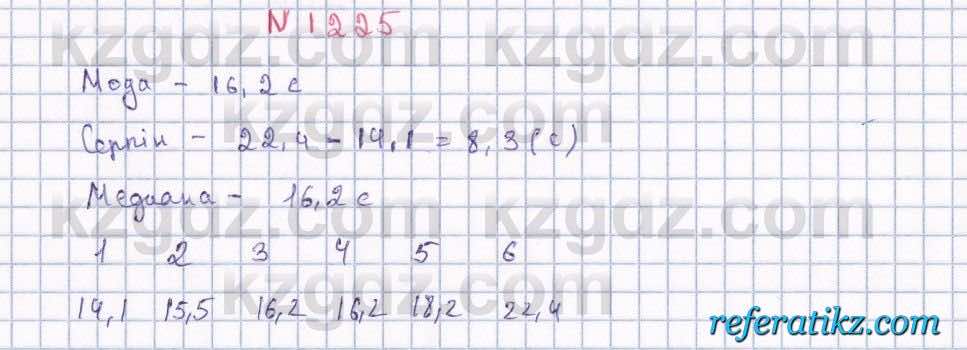 N 1225
kzgdz.com kzgdz.com
Мода – 16,2 с
kzgdz.com
Серпін – 22,4 – 14,1 = 8,3 (с)
Медиана – 16,2 с
kzgdz.com kzgdz.com
1 2 3 4 5 6
kzgdz.com
14,1 15,5 16,2 16,2 18,2 22,4
referatikz.com